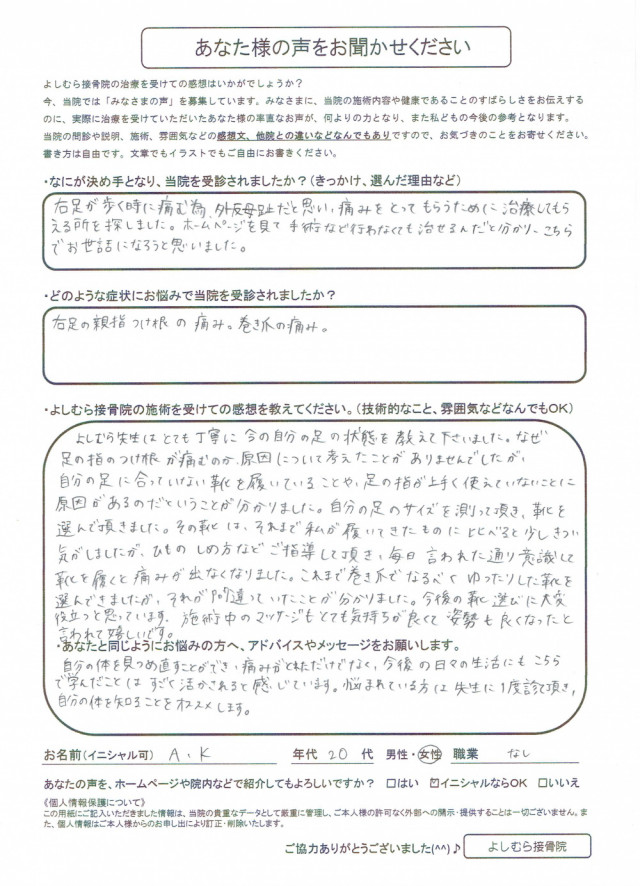 あなた様の声をお聞かせください
よしむら接骨院の治療を受けての感想はいかがでしょうか?
今、当院では「みなさまの声」を募集しています。みなさまに、当院の施術内容や健康であることのすばらしさをお伝えする
のに、実際に治療を受けていただいたあなた様の率直なお声が、何よりの力となり、また私どもの今後の参考となります。
当院の問診や説明、施術、雰囲気などの感想文、他院との違いなどなんでもありですので、お気づきのことをお寄せください。
書き方は自由です。文章でもイラストでもご自由にお書きください。
・なにが決め手となり、当院を受診されましたか?(きっかけ、選んだ理由など)
右足が歩く時に痛む為、外反母趾だと思い、痛みをとってもらうために治療してもら
える所を探しました。ホームページを見て手術など行わなくても治せるんだと分かり、こちら
でお世話になろうと思いました。
・どのような症状にお悩みで当院を受診されましたか?
右足の親指つけ根の痛み。巻き爪の痛み。
・よしむら接骨院の施術を受けての感想を教えてください。(技術的なこと、雰囲気などなんでもOK)
よしむら先生はとても丁寧に今の自分の足の状態を教えて下さいました。なぜ
足の指のつけ根が痛むのか、原因について考えたことがありませんでしたが、
自分の足に合っていない靴を履いていることや、足の指が上手く使えていないことに
原因があるのだということが分かりました。自分の足のサイズを測って頂き、靴を
選んで頂きました。その靴は、それまで私が履いてきたものに比べると少しきつい
気がしましたが、ひものしめ方などご指導して頂き、毎日言われた通り意識して
靴を履くと痛みが出なくなりました。これまで巻き爪でなるべくゆったりした靴を
選んできましたが、それが間違っていたことが分かりました。今後の靴選びに大変
役立つと思っています。施術中のマッサージもとても気持ちが良くて姿勢も良くなったと
言われて嬉しいです。
・あなたと同じようにお悩みの方へ、アドバイスやメッセージをお願いします。
自分の体を見つめ直すことができ、痛みがとれただけでなく、今後の日々の生活にもこちら
で学んだことはすごく活かされると感じています。悩まれている方は先生に1度診て頂き、
自分の体を知ることをオススメします。
お名前(イニシャル可) A.K 年代 20 代 男性・女性 職業 なし
あなたの声を、ホームページや院内などで紹介してもよろしいですか? □はい ☑イニシャルならOK □いいえ
《個人情報保護について》
この用紙にご記入いただきました情報は、当院の貴重なデータとして厳重に管理し、ご本人様の許可なく外部への開示・提供することは一切ございません。ま
た、個人情報はご本人様からのお申し出により訂正・削除いたします。
ご協力ありがとうございました(^^)♪ よしむら接骨院